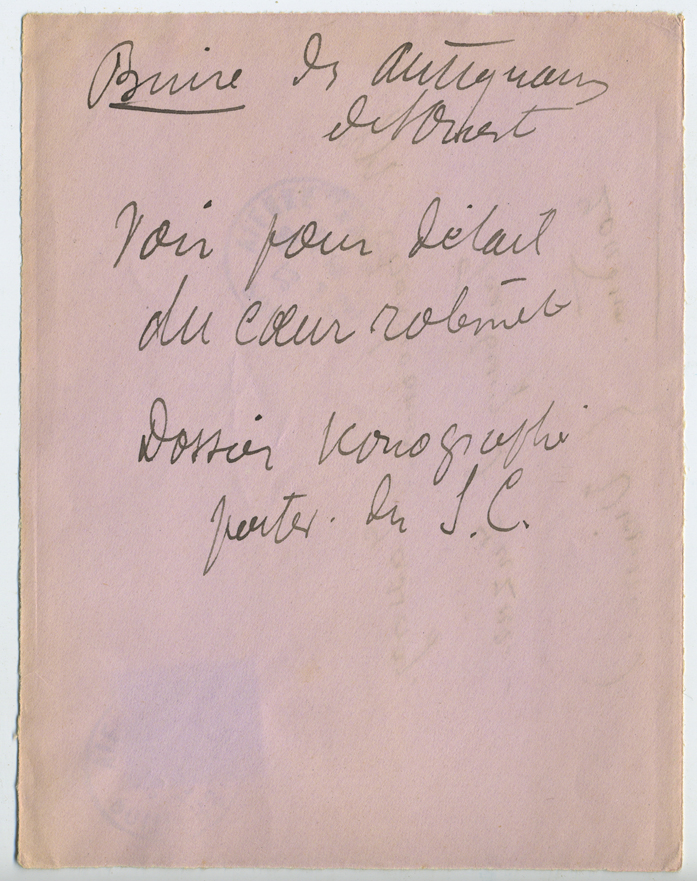 Buire des Antiquaires
de l'Ouest
Voir pour détail
du cœur robinet
Dossier Iconographie
poster. du S.C.